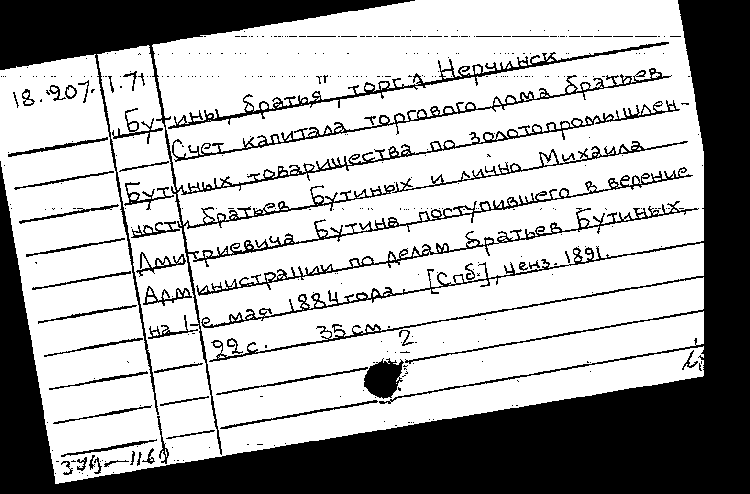 18.207. 1.71
„Бутины, братья", торг. д. Нерчинск
Счет капитала торгового дома братьев
Бутиных, товарищества по золотопромышлен-
ности братьев Бутиных и лично Михаила
Дмитриевича Бутина, поступившего в ведение
Администрации по делам братьев Бутиных,
на 1-е мая 1884 года. [Спб.], ценз. 1891.
22 с. 35 см.
2